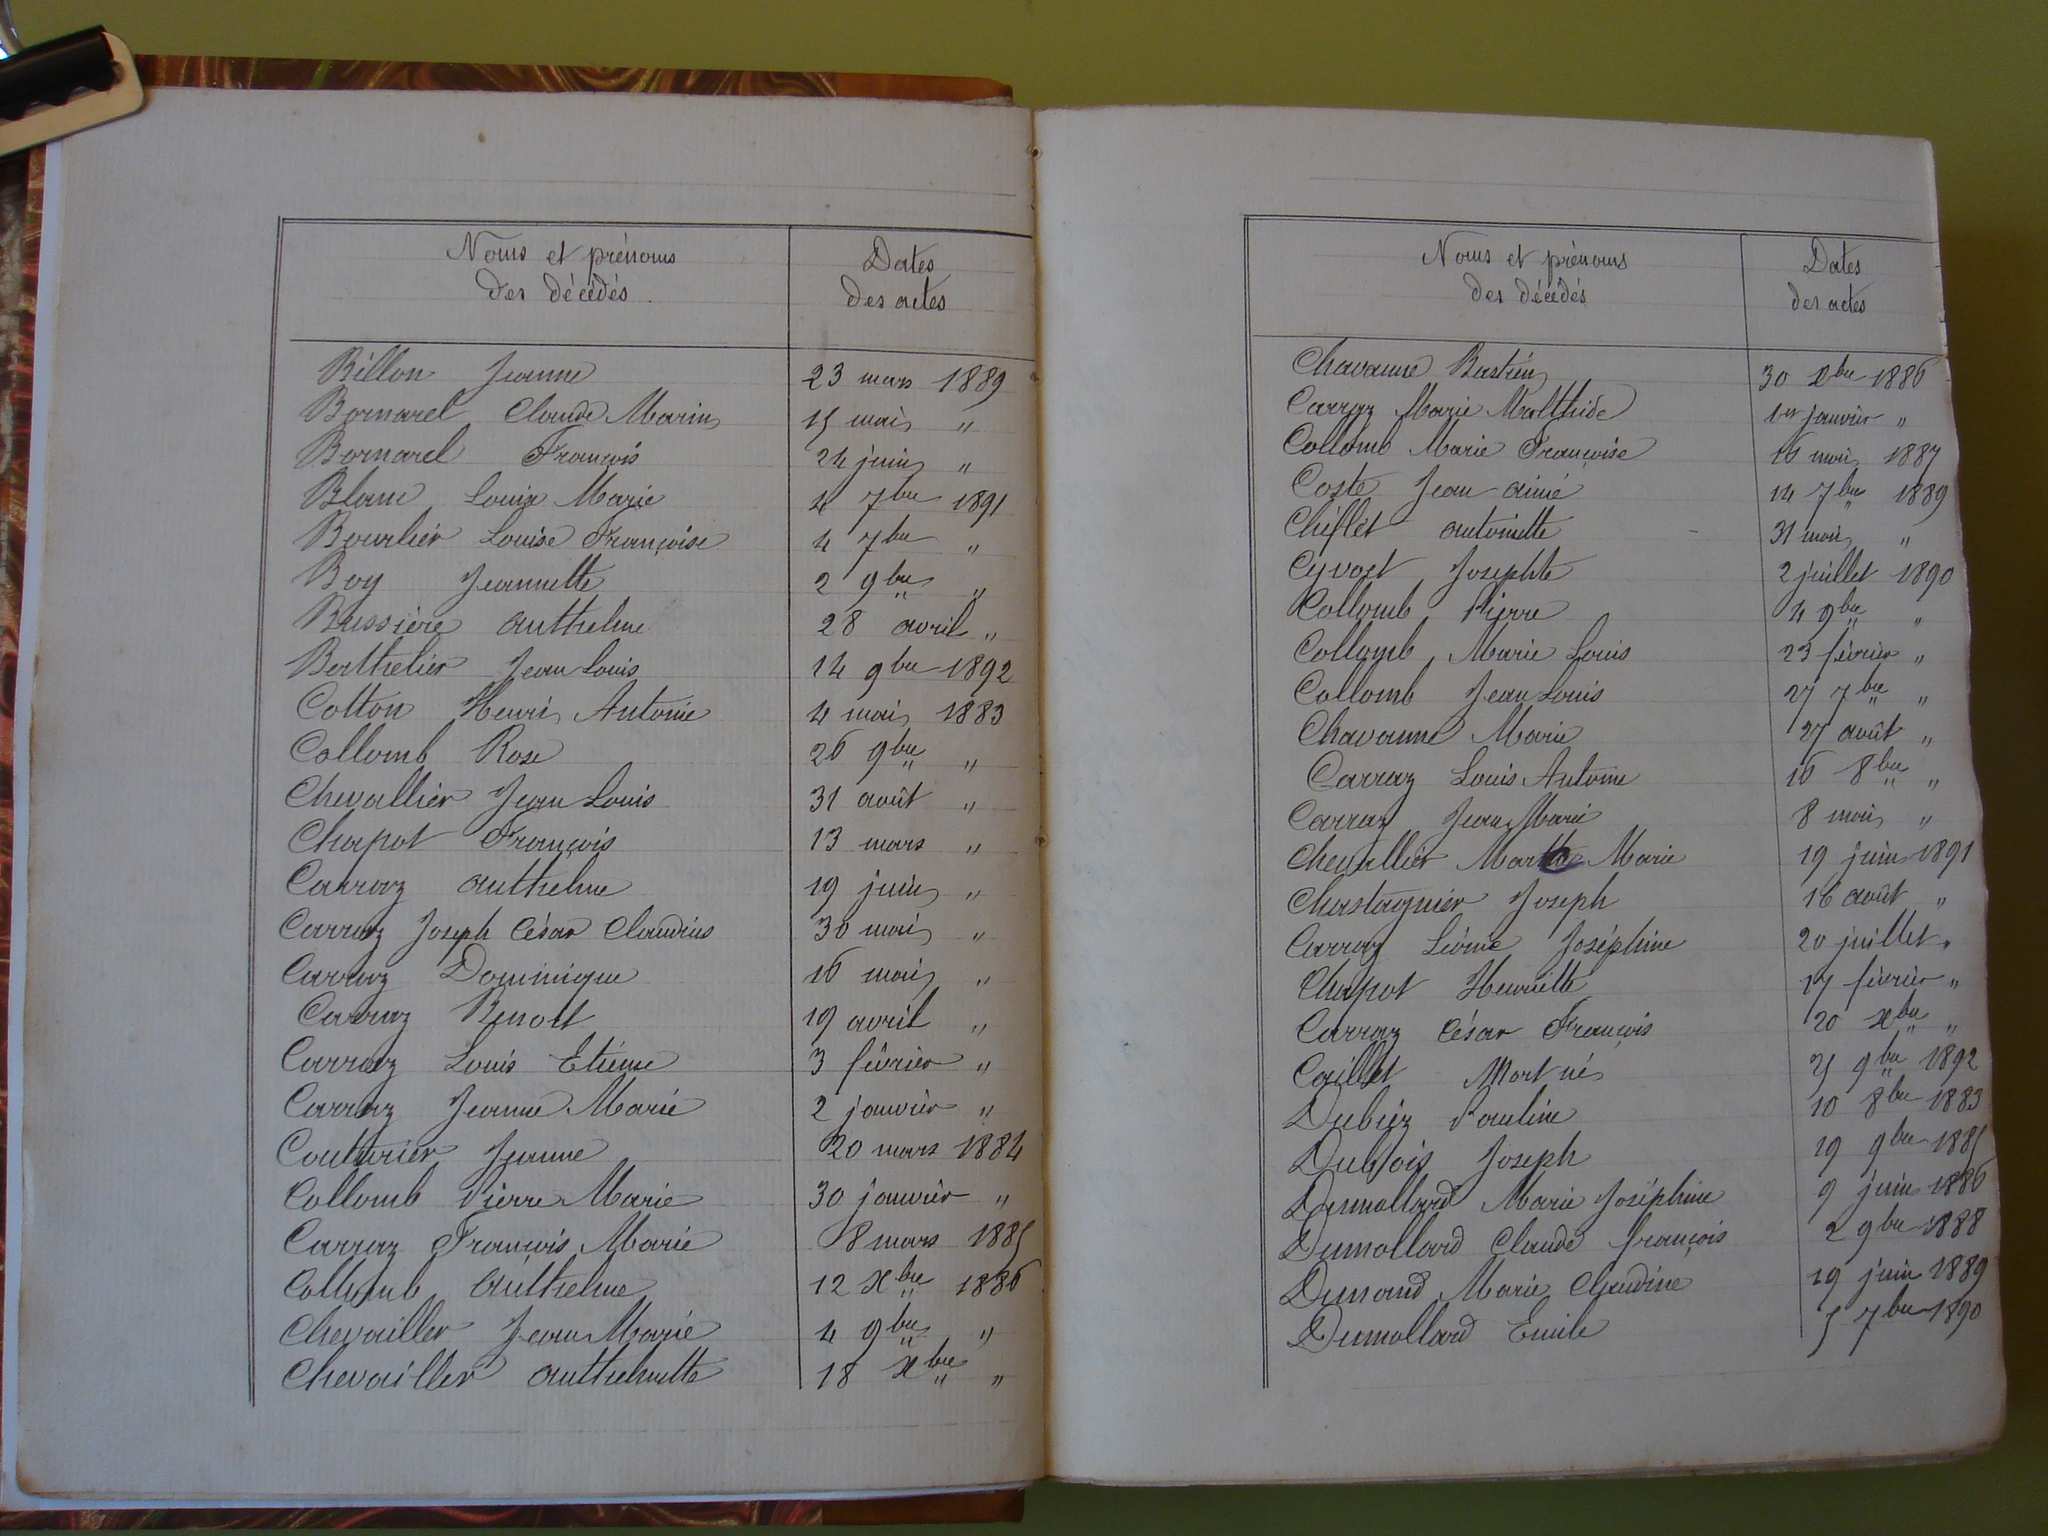 Noms et prénoms
des décédés
Dates
des actes
Billon Jeanne 23 mars 1889
Bornarel Claude Marin 15 mai "
Bornarel François 24 juin "
Blanc Louis Marie 4 7bre 1891
Bourlier Louise Françoise 4 7bre "
Boy Jeannette 2 9bre "
Bussière anthelme 28 avril "
Berthelier Jean Louis 14 9bre 1892
Cotton Henri Antoine 4 mai 1883
Collomb Rose 26 9bre "
Chevallier Jean Louis 31 août "
Chapot François 13 mars "
Carraz anthelme 19 juin "
Carraz Joseph César Claudius 30 mai "
Carraz Dominique 16 mai "
Carraz Benoit 19 avril "
Carraz Louis Etiénne 3 février "
Carraz Jeanne Marie 2 janvier "
Couturier Jeanne 20 mars 1884
Collomb Pierre Marie 30 janvier "
Carraz François Marie 8 mars 1885
Collomb anthelme 12 xbre 1886
Chevailler Jean Marie 4 9bre "
Chevailler anthelmette 18 xbre "
Noms et prénoms
des décédés
Dates
des actes
Chavanne Bastien 30 xbre 1886
Carraz Marie Malthide 1er janvier "
Collomb Marie Françoise 16 mai 1887
Coste Jean aimé 14 7bre 1889
Chiflet antoinette 31 mai "
Cyvoct Josephte 2 juillet 1890
Collomb Pierre 4 9bre "
Collomb Marie Louis 23 février "
Collomb Jean Louis 27 7bre "
Chavanne Marie 27 août "
Carraz Louis Antoine 16 8bre "
Carraz Jean Marie 8 mai "
Chevallier Marthe Marie 19 juin 1891
Chastagnier Joseph 16 août "
Carraz Léonie Joséphine 20 juillet "
Chapot Henriette 17 février "
Carraz César François 20 xbre "
Caillet Mort né 25 9bre 1892
Dubiez Pauline 10 8bre 1883
Dubois Joseph 19 9bre 1885
Dumollard Marie Joséphine 9 juin 1886
Dumollard Claude françois 2 9bre 1888
Dunand Marie Claudine 19 juin 1889
Dumollard Emile 5 7bre 1890